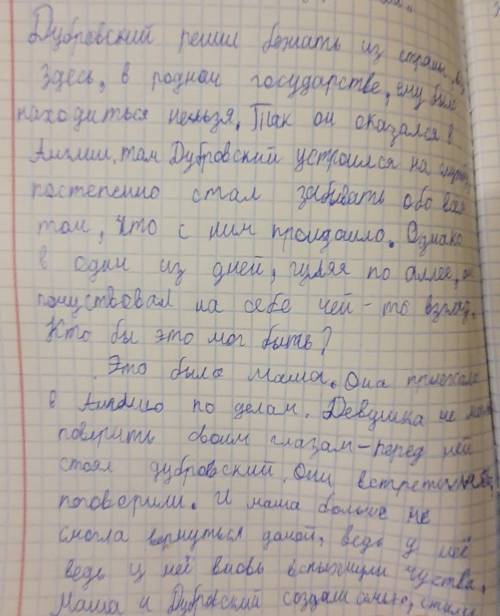 Дубровский решил бежать из страны, 
Здесь, в родном государстве, ему было
находиться нельзя. Так он оказался в
Англии, там Дубровский устроился на
постепенно стал забывать обо всём
том, что с ним произошло. Однако
в один из дней, гуляя по аллее, он
почуствовал на себе чей-то взгляд.
Кто бы это мог быть?
Это была маша. Она приехала
в Англию по делам. Девушка не могла
поверить своим глазам-перед ней
стоял дубровский. Они
поговорили. И маша больше не
смогла вернуться домой, ведь у неё
ведь у неё вновь вспыхнули чуства.
Маша и Дубровский создали семью,